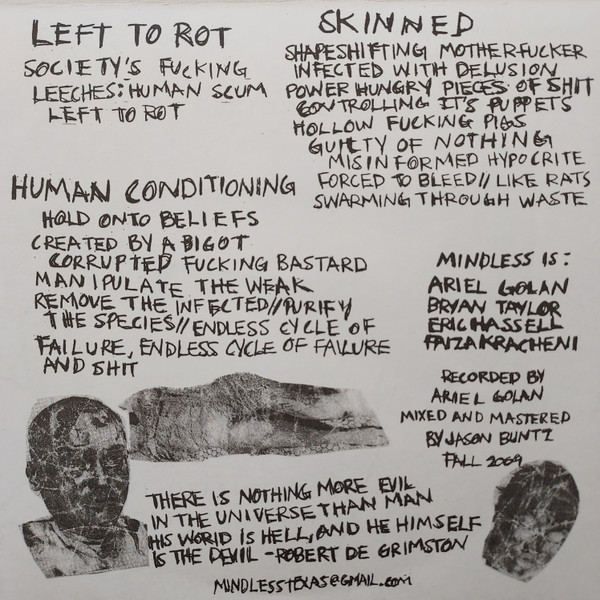 LEFT TO ROT
SOCIETY'S FUCKING
LEECHES: HUMAN SCUM
LEFT TO ROT
SKINNED
SHAPESHIFTING MOTHERFUCKER
INFECTED WITH DELUSION
POWER HUNGRY PIECES OF SHIT
CONTROLLING IT'S PUPPETS
HOLLOW FUCKING PIGS
GUILTY OF NOTHING
MISINFORMED HYPOCRITE
FORCED TO BLEED// LIKE RATS
SWARMING THROUGH WASTE
HUMAN CONDITIONING
HOLD ONTO BELIEFS
CREATED BY A BIGOT
CORRUPTED FUCKING BASTARD
MANIPULATE THE WEAK
REMOVE THE INFECTED//PURIFY
THE SPECIES//ENDLESS CYCLE OF
FAILURE, ENDLESS CYCLE OF FAILURE
AND SHIT
MINDLESS IS:
ARIEL GOLAN
BRYAN TAYLOR
ERIC HASSELL
FAIZA KRACHENI
RECORDED BY
ARIEL GOLAN
MIXED AND MASTERED
BY JASON BUNTZ
FALL 2009
THERE IS NOTHING MORE EVIL
IN THE UNIVERSE THAN MAN
HIS WORLD IS HELL, AND HE HIMSELF
IS THE DEVIL -ROBERT DE GRIMSTON
MINDLESSTEXAS@GMAIL.COM